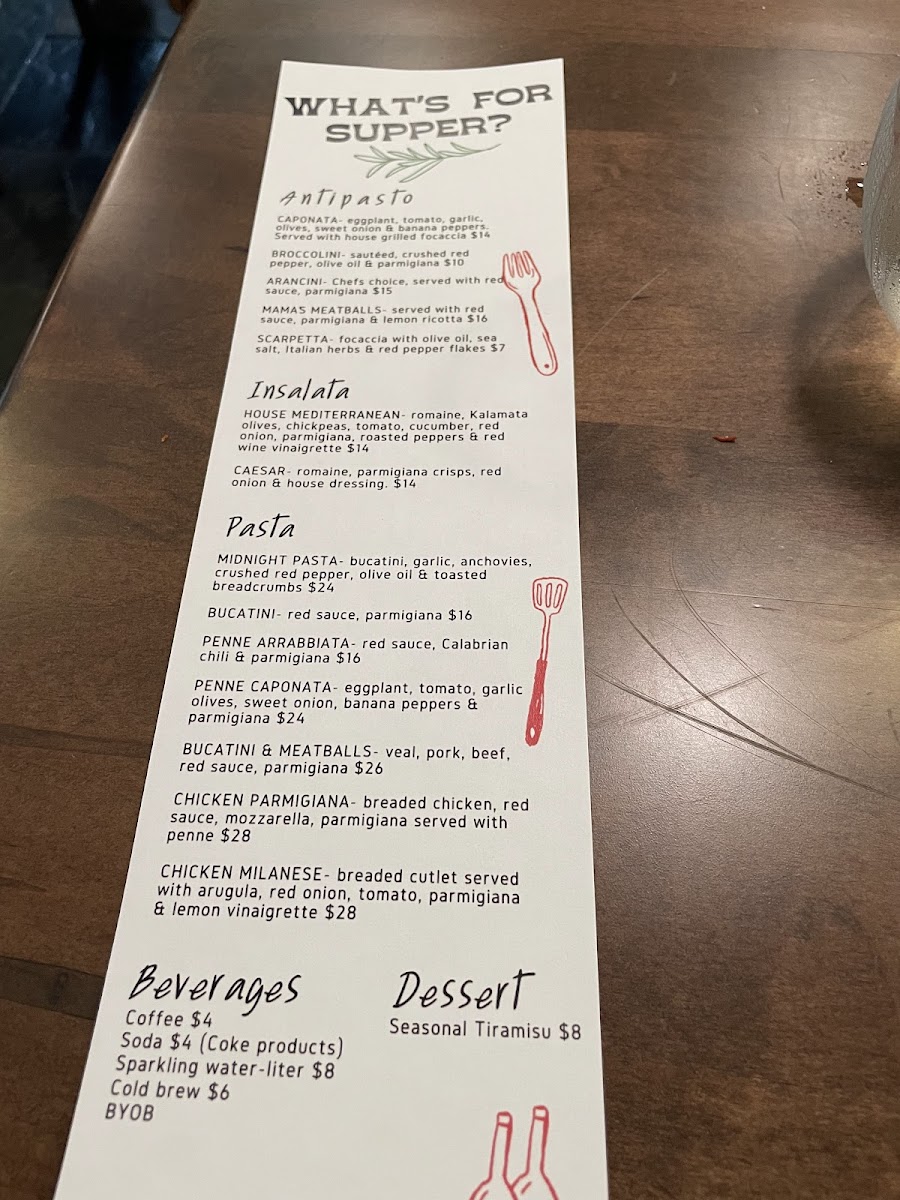 WHAT'S FOR
SUPPER?
Antipasto
CAPONATA- eggplant, tomato, garlic,
olives, sweet onion & banana peppers.
Served with house grilled focaccia $14
BROCCOLINI- sautéed, crushed red
pepper, olive oil & parmigiana $10
ARANCINI- Chefs choice, served with red
sauce, parmigiana $15
MAMAS MEATBALLS- served with red
sauce, parmigiana & lemon ricotta $16
SCARPETTA- focaccia with olive oil, sea
salt, Italian herbs & red pepper flakes $7
Insalata
HOUSE MEDITERRANEAN- romaine, Kalamata
olives, chickpeas, tomato, cucumber, red
onion, parmigiana, roasted peppers & red
wine vinaigrette $14
CAESAR- romaine, parmigiana crisps, red
onion & house dressing. $14
Pasta
MIDNIGHT PASTA- bucatini, garlic, anchovies,
crushed red pepper, olive oil & toasted
breadcrumbs $24
BUCATINI- red sauce, parmigiana $16
PENNE ARRABBIATA- red sauce, Calabrian
chili & parmigiana $16
PENNE CAPONATA- eggplant, tomato, garlic
olives, sweet onion, banana peppers &
parmigiana $24
BUCATINI & MEATBALLS- veal, pork, beef,
red sauce, parmigiana $26
CHICKEN PARMIGIANA- breaded chicken, red
sauce, mozzarella, parmigiana served with
penne $28
CHICKEN MILANESE- breaded cutlet served
with arugula, red onion, tomato, parmigiana
& lemon vinaigrette $28
Beverages
Coffee $4
Soda $4 (Coke products)
Sparkling water-liter $8
Cold brew $6
BYOB
Dessert
Seasonal Tiramisu $8